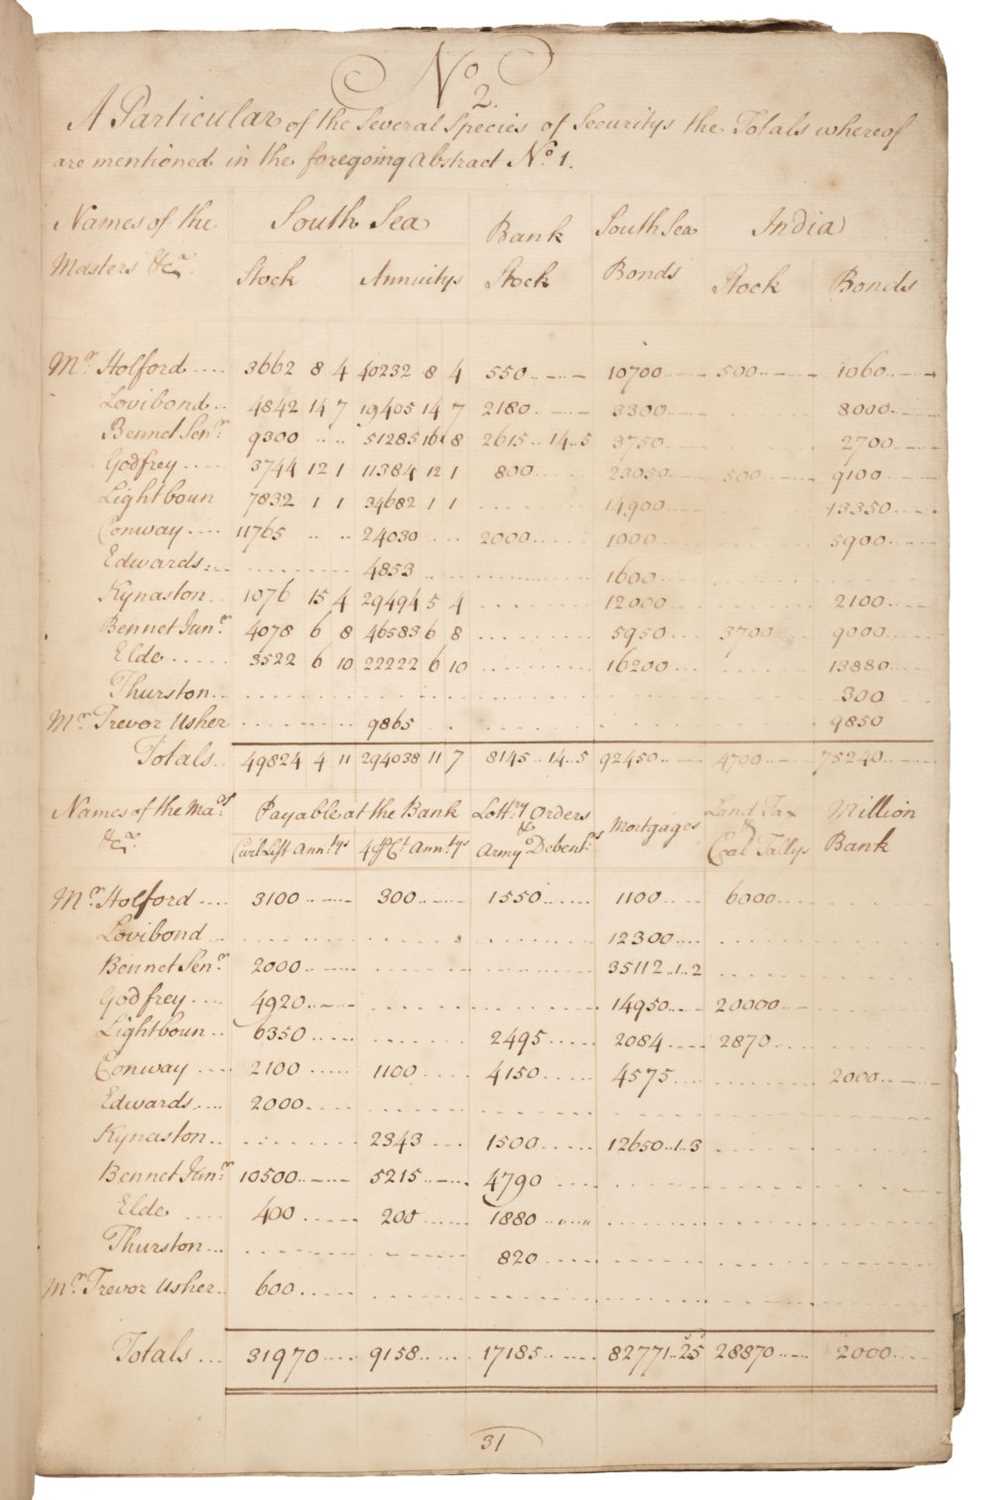 No. 2.
A Particular of the Several Species of Securitys the Totals whereof
are mentioned in the foregoing Abstract No. 1.
Names of the Masters &ca. | South Sea Stock | South Sea Annuitys | Bank Stock | South Sea Bonds | India Stock | India Bonds
Mr. Holford .... 3662 8 4 | 40232 8 4 | 550 | 10700 | 500 | 1060
Lovibond .. 4842 14 7 | 19405 14 7 | 2180 | 3300 | | 8000
Bennet Senr. 9300 .. .. | 51285 16 8 | 2615 .. 14 .. 5 | 3750 | | 2700
Godfrey .... 3744 12 1 | 11384 12 1 | 800 | 23050 | 500 | 9100
Lightboun 7832 1 1 | 34682 1 1 | | 14900 | | 13350
Conway .... 11765 .. .. | 24030 | 2000 | 1000 | | 5900
Edwards .... | 4853 | | 1600 | |
Kynaston. 1076 15 4 | 29494 5 4 | | 12000 | | 2100
Bennet Junr. 4078 6 8 | 46583 6 8 | | 5950 | 3700 | 9000
Elde ..... 3522 6 10 | 22222 6 10 | | 16200 | | 13880
Thurston.. | | | | | 300
Mr. Trevor Usher | 9865 | | | | 9850
Totals.. 49824 4 11 | 294038 11 7 | 8145 .. 14 .. 5 | 92450 | 4700 | 75240
Names of the Mars. &ca. | Payable at the Bank Civil List Ann:tys | 4 ₱ Ct Ann:tys | Lotty. Orders & Army Debents. | Mortgages | Land Tax & Coal Tallys | Million Bank
Mr. Holford .... 3100 | 300 | 1550 | 1100 | 6000 |
Lovibond .. | | | 12300 | |
Bennet Senr. 2000 | | | 35112 .. 1 .. 2 | |
Godfrey .... 4920 | | | 14950 | 20000 |
Lightboun .. 6350 | | 2495 | 2084 | 2870 |
Conway .... 2100 | 1100 | 4150 | 4575 | | 2000
Edwards .... 2000 | | | | |
Kynaston.. | 2343 | 1500 | 12650 .. 1 .. 3 | |
Bennet Junr. 10500 | 5215 | 4790 | | |
Elde .... 400 | 200 | 1880 | | |
Thurston... | | 820 | | |
Mr. Trevor Usher.. 600 | | | | |
Totals ... 31970 | 9158 | 17185 | 82771 .. 2 5 | 28870 | 2000
31